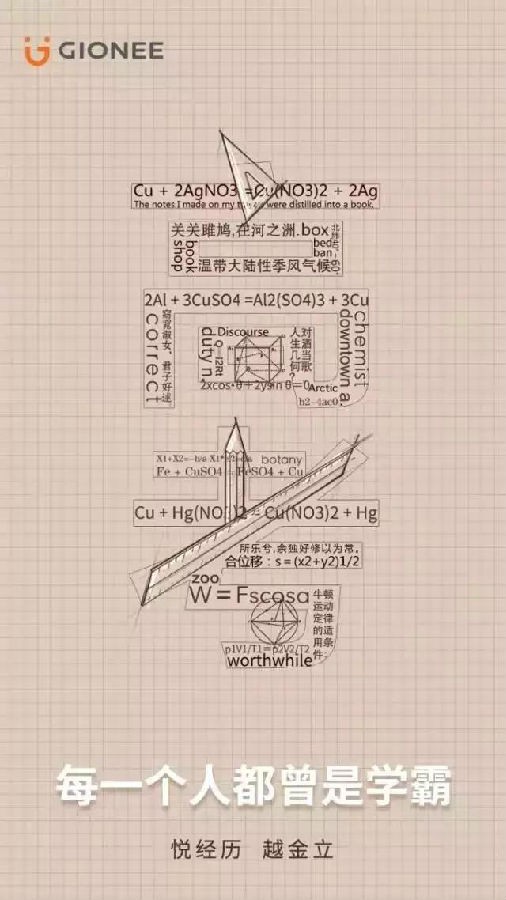 GIONEE
Cu + 2AgNO3 = Cu(NO3)2 + 2Ag
The notes I made on my were distilled into a book.
关关雎鸠,在河之洲.box
shop
book
ban,
温带大陆性季风气候
2Al + 3CuSO4 =Al2(SO4)3 + 3Cu
correct
窈窕淑女,君子好逑
duty n
Discourse
对酒当歌
人生几何?
2xcos·θ+2ysin θ=0
Arctic
b2-4ac0
downtown a.
chemist
botany
Fe + CuSO4 = FeSO4 + Cu
Cu + Hg(NO3)2 = Cu(NO3)2 + Hg
所乐兮,余独好修以为常,
合位移：s = (x2+y2)1/2
zoo
W = Fscosa
牛顿运动定律的适用条件:
p1V1/T1=p2V2/T2
worthwhile
每一个人都曾是学霸
悦经历 越金立